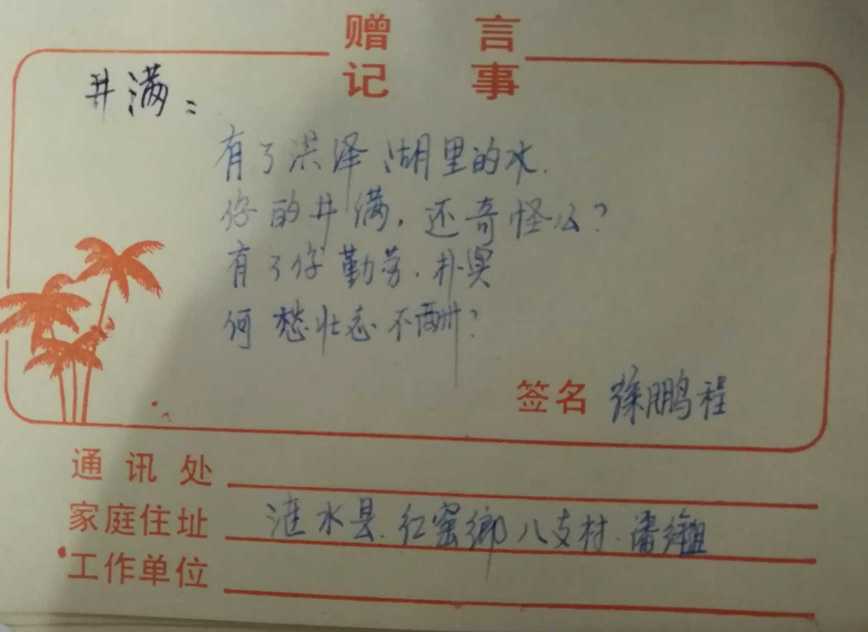 赠言
记事
井满：
有了洪泽湖里的水.
你的井满，还奇怪么？
有了你勤劳.朴実
何愁壮志不酬？
签名 徐鹏程
通讯处
家庭住址 涟水县.红窑鄉八支村.潘组
工作单位